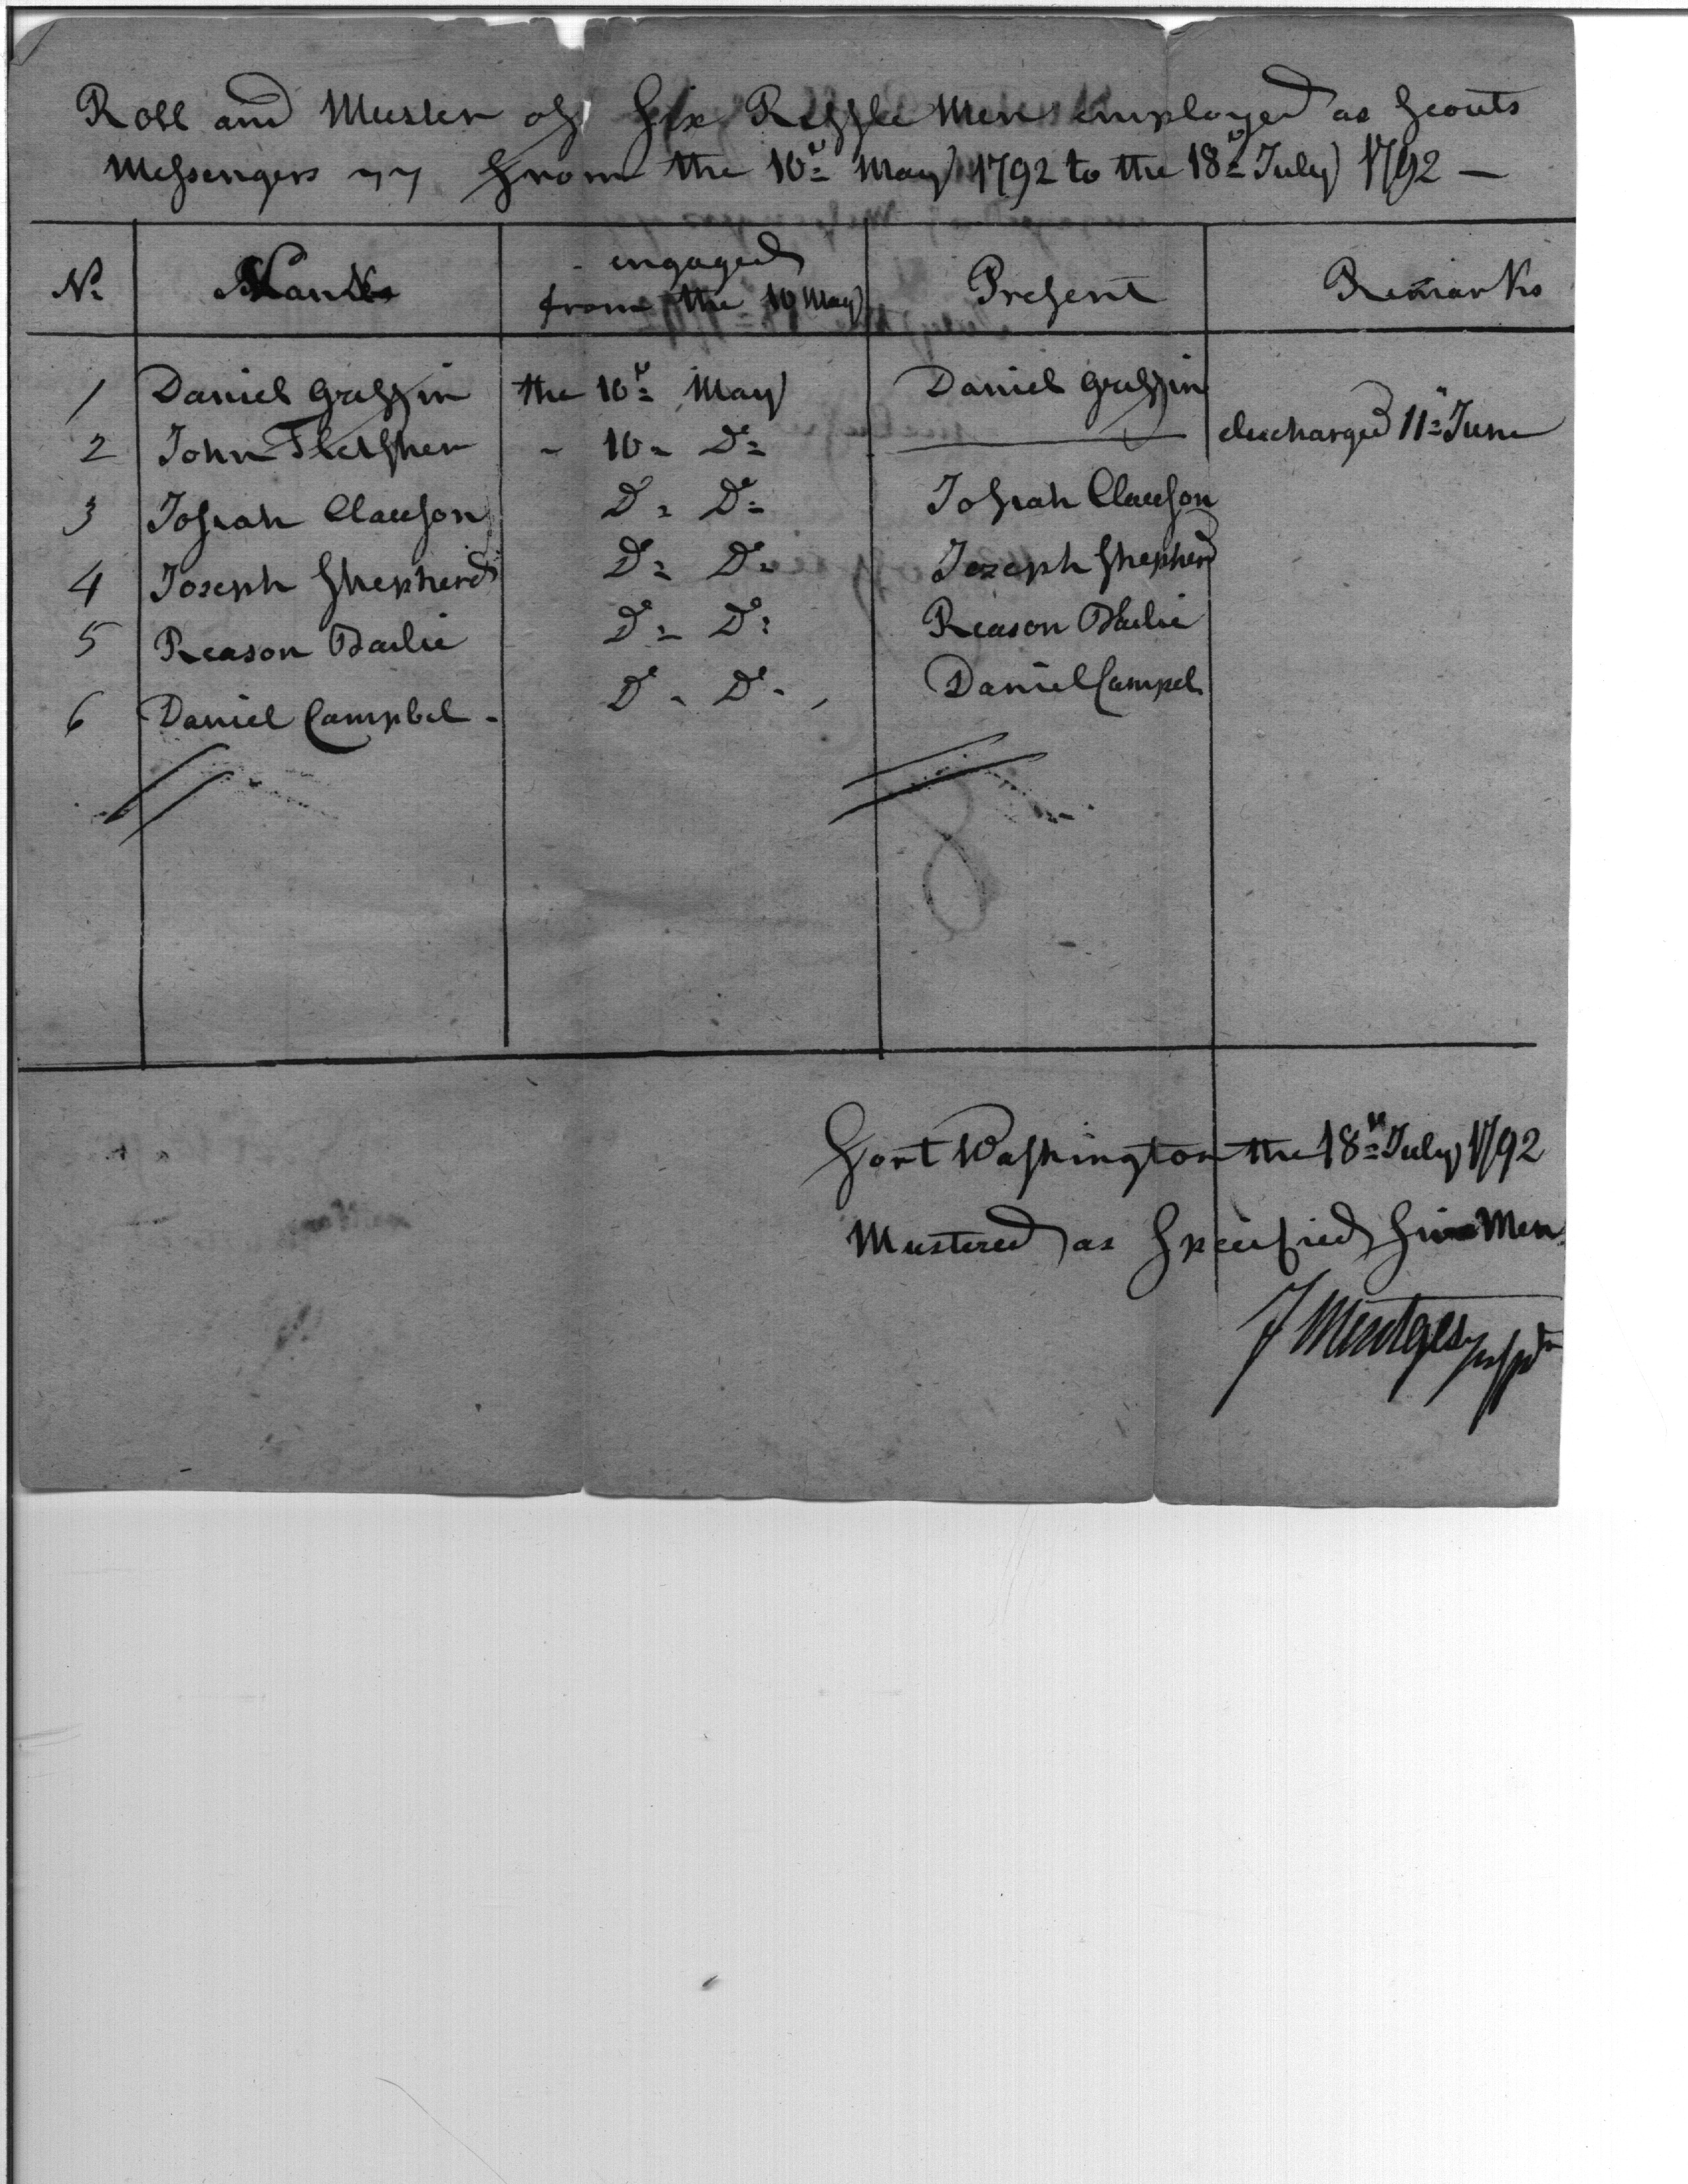 Roll and Muster of Six Riffle Men employed as Scouts
Messengers yy from the 10th May 1792 to the 18th July 1792 —
No. Names engaged from the 10 May Present Remarks
1 Daniel Griffin the 10th May Daniel Griffin
2 John Fletsher - 10- Do — discharged 11th June
3 Josiah Clawson Do Do Josiah Clawson
4 Joseph Shepherd Do Do Joseph Shepherd
5 Reason Bailie Do Do Reason Bailie
6 Daniel Campbel - Do - Do - Daniel Campel
Fort Washington the 18th July 1792
Mustered as Specified five Men
F Mentges Inspr